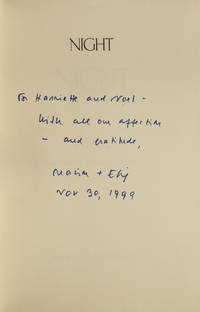 NIGHT
For Harriette and Noel -
With all our affection
- and gratitude,
Marion + Elie
Nov 30, 1999